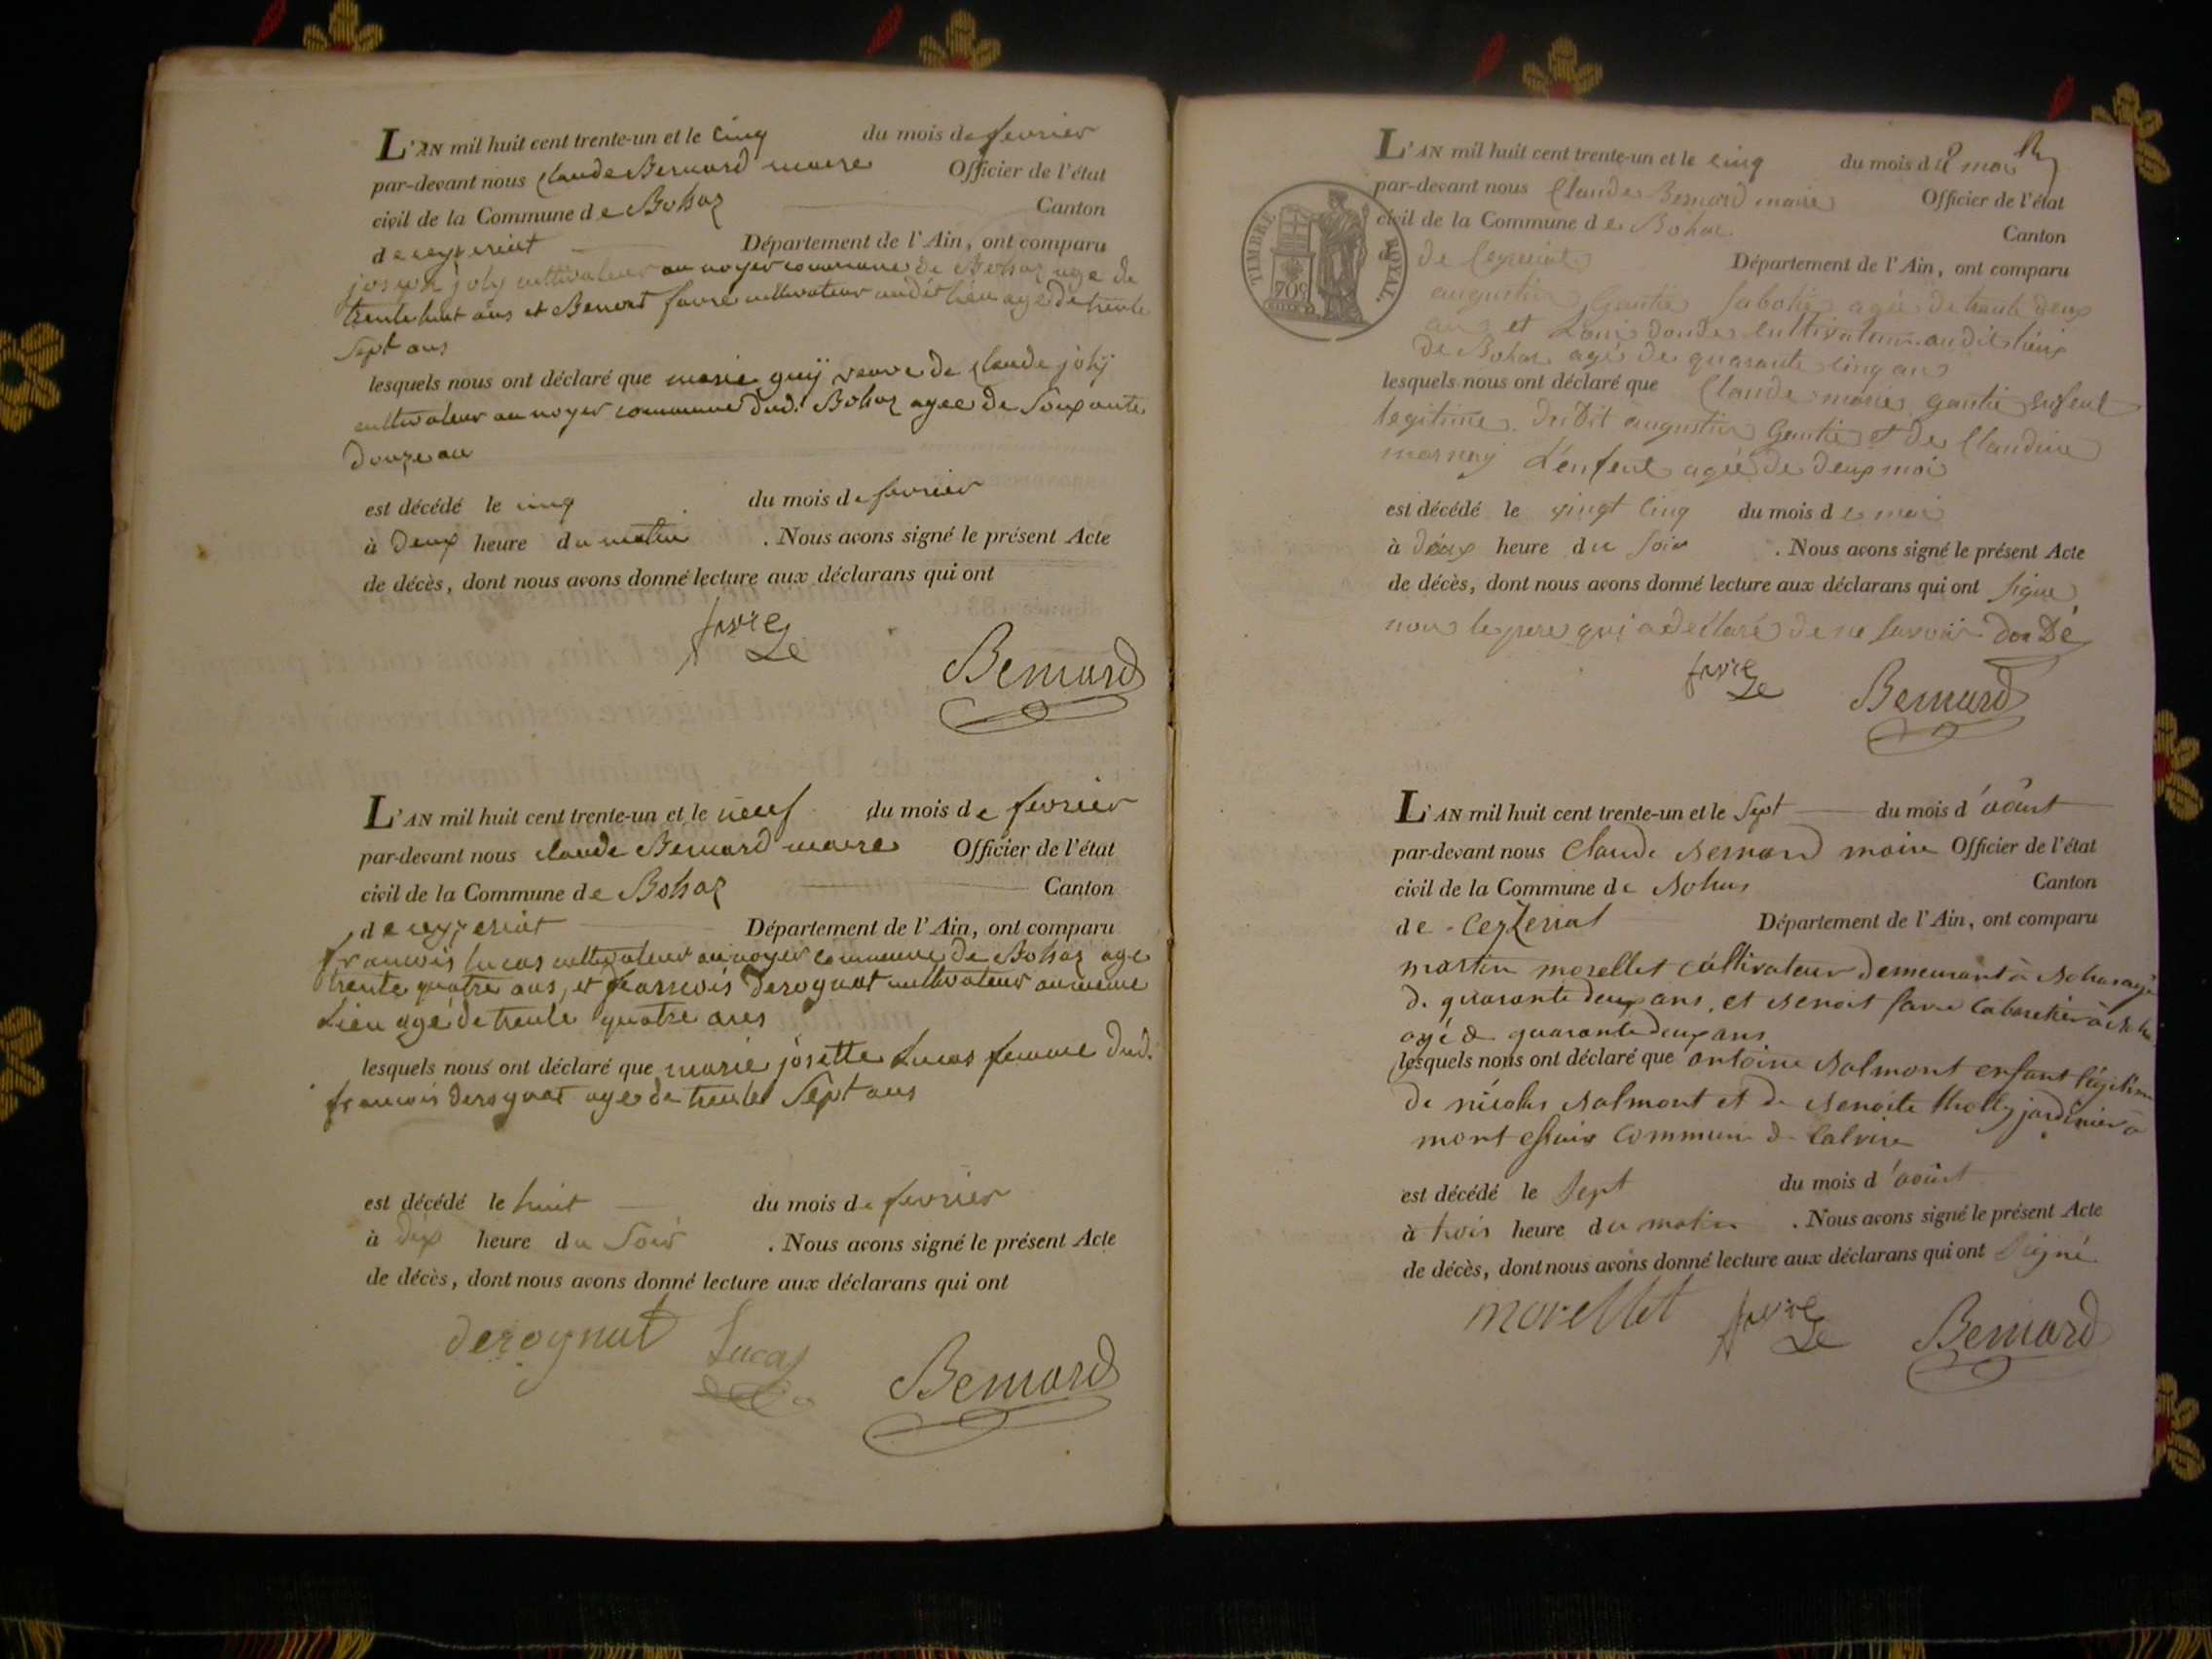 L'AN mil huit cent trente-un et le cinq du mois de fevrier
par-devant nous claude Bernard maire Officier de l'état
civil de la Commune de Bohaz Canton
de ceyzeriat Département de l'Ain, ont comparu
joseph joly cultivateur au noyer commune de Bohaz age de
trente huit ans et Benoit favre cultivateur audit lieu age de trente
Sept ans
lesquels nous ont déclaré que marie guÿ veuve de claude joly
cultivateur au noyer commune dud. Bohaz agee de Soixante
douze an
est décédé le cinq du mois de fevrier
à deux heure du matin . Nous avons signé le présent Acte
de décès, dont nous avons donné lecture aux déclarans qui ont
favre
Le
Bernard
L'AN mil huit cent trente-un et le neuf du mois de fevrier
par-devant nous claude Bernard maire Officier de l'état
civil de la Commune de Bohaz Canton
de ceyzeriat Département de l'Ain, ont comparu
francois lucas cultivateur au noyer commune de Bohaz age
trente quatre ans, et francois derognat cultivateur au meme
Lieu agé de trente quatre ans
lesquels nous ont déclaré que marie josette Lucas femme dud.
francois derognat age de trente Sept ans
est décédé le huit du mois de fevrier
à dix heure du Soir . Nous avons signé le présent Acte
de décès, dont nous avons donné lecture aux déclarans qui ont
derognat Lucas
Bernard
L'AN mil huit cent trente-un et le cinq du mois de mai
par-devant nous Claude Bernard maire Officier de l'état
civil de la Commune de Bohas Canton
de Ceyzeriat Département de l'Ain, ont comparu
TIMBRE ROYAL.
70c
augustin Gautier Sabotier agée de trente deux
ans et Loui doude Cultivateur audit lieux
de Bohas agé de quarante cinq ans
lesquels nous ont déclaré que Claude marie gautié enfent
legitime du Dit augustin Gautié et de Claudine
mornay L'enfent agée de deux moi
est décédé le vingt cinq du mois de mai
à deux heure du Soir . Nous avons signé le présent Acte
de décès, dont nous avons donné lecture aux déclarans qui ont Signe
non le pere qui a déclaré de ne Savoir doudé
favre
Le
Bernard
L'AN mil huit cent trente-un et le Sept du mois d'août
par-devant nous Claude Bernard maire Officier de l'état
civil de la Commune de Bohas Canton
de Ceyzeriat Département de l'Ain, ont comparu
martin morellet cultivateur demeurant à Bohas agé
de quarante deux ans, et Benoit favre Cabaretier à
agé de quarante deux ans
lesquels nous ont déclaré que antoine Balmont enfant légitime
de nicolas Balmont et de Benoite tholly jardinier à
mont commune de
est décédé le Sept du mois d'août
à trois heure du matin . Nous avons signé le présent Acte
de décès, dont nous avons donné lecture aux déclarans qui ont Signé
morellet favre
Le
Bernard